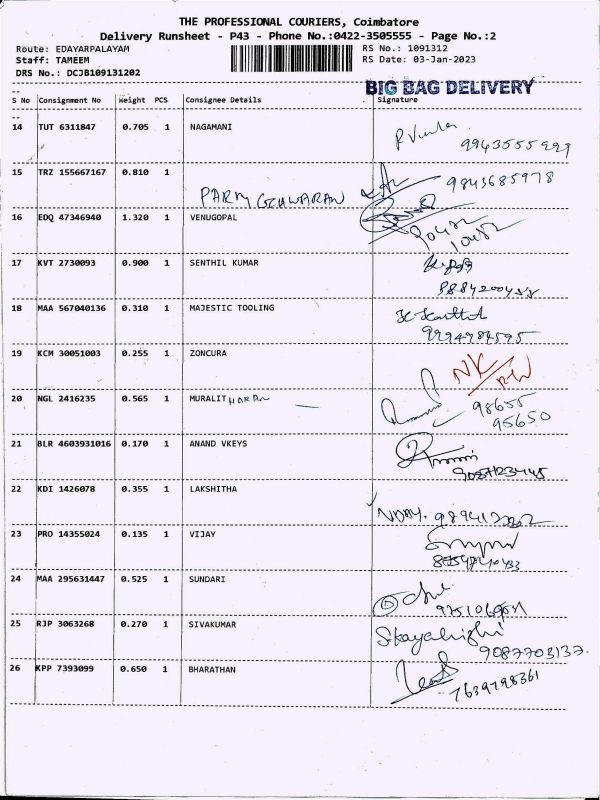 THE PROFESSIONAL COURIERS, Coimbatore
Delivery Runsheet - P43 - Phone No.:0422-3505555 - Page No.:2
Route: EDAYARPALAYAM RS No.: 1091312
Staff: TAMEEM RS Date: 03-Jan-2023
DRS No.: DCJB109131202
BIG BAG DELIVERY
S No Consignment No Weight PCS Consignee Details Signature
14 TUT 6311847 0.705 1 NAGAMANI
9943555929
15 TRZ 155667167 0.810 1
9843685978
16 EDQ 47346940 1.320 1 VENUGOPAL
90432
10452
17 KVT 2730093 0.900 1 SENTHIL KUMAR
18 MAA 567040136 0.310 1 MAJESTIC TOOLING
9994984595
19 KCM 30051003 0.255 1 ZONCURA
NK
20 NGL 2416235 0.565 1 MURALITHARAN
98655
95650
21 BLR 4603931016 0.170 1 ANAND VKEYS
9087123445
22 KDI 1426078 0.355 1 LAKSHITHA
23 PRO 14355024 0.135 1 VIJAY
24 MAA 295631447 0.525 1 SUNDARI
25 RJP 3063268 0.270 1 SIVAKUMAR
9087703137.
26 KPP 7393099 0.650 1 BHARATHAN
7639798361